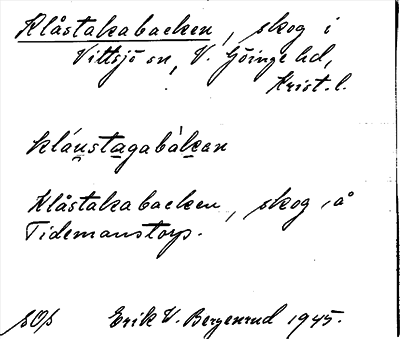 Klåstakabacken, skog i
Vittsjö sn, V. Göinge hd,
Krist. l.
kláustagabàkan
Klåstakabacken, skog, å
Tidemanstorp.
Erik V. Bergenrud 1945.